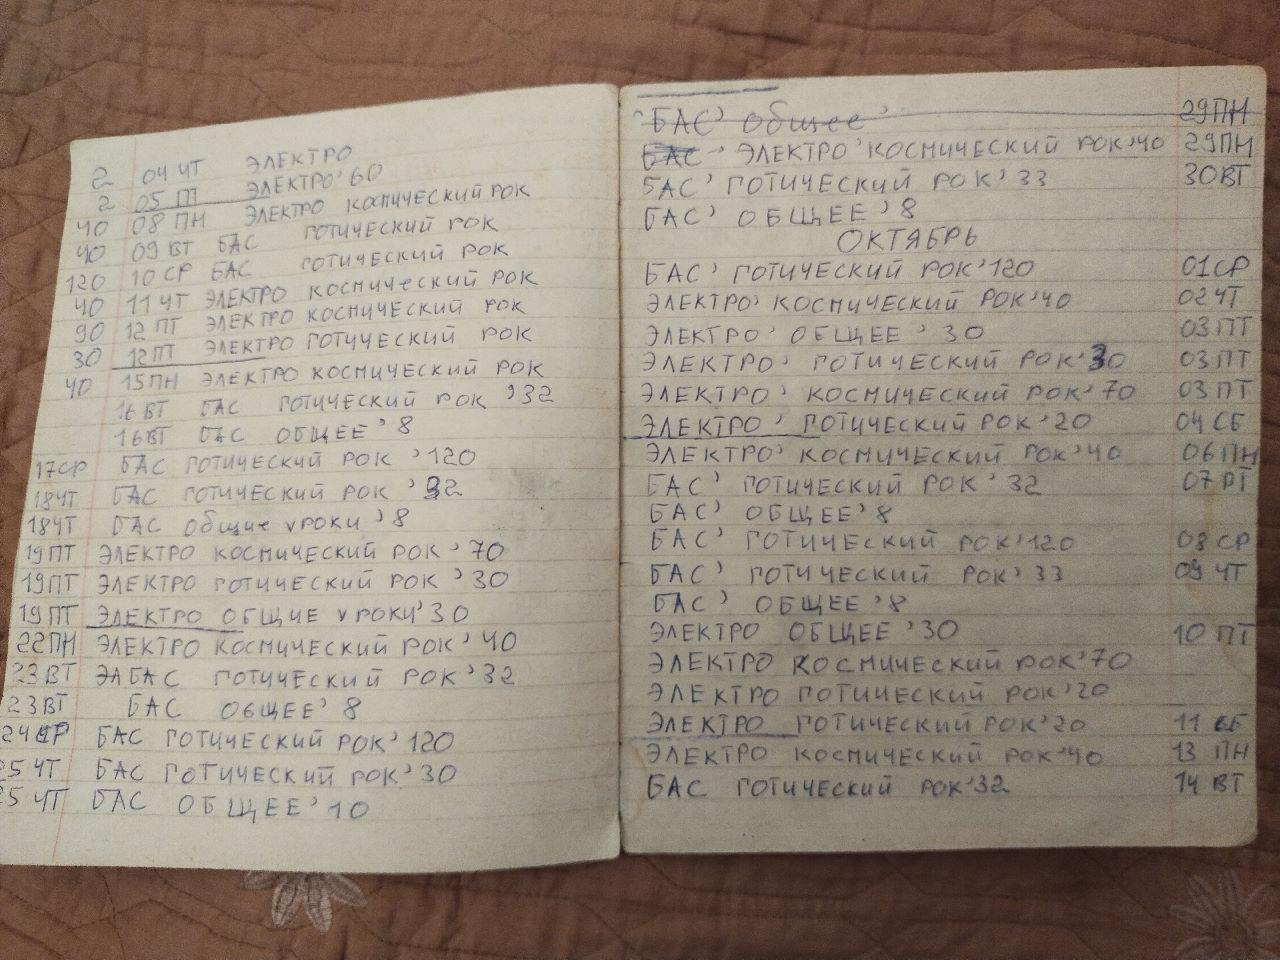 2 04 ЧТ ЭЛЕКТРО
2 05 ПТ ЭЛЕКТРО'60
40 08 ПН ЭЛЕКТРО КОСМИЧЕСКИЙ РОК
40 09 ВТ БАС ГОТИЧЕСКИЙ РОК
120 10 СР БАС ГОТИЧЕСКИЙ РОК
40 11 ЧТ ЭЛЕКТРО КОСМИЧЕСКИЙ РОК
90 12 ПТ ЭЛЕКТРО КОСМИЧЕСКИЙ РОК
30 12 ПТ ЭЛЕКТРО ГОТИЧЕСКИЙ РОК
40 15 ПН ЭЛЕКТРО КОСМИЧЕСКИЙ РОК
16 ВТ БАС ГОТИЧЕСКИЙ РОК '32
16 ВТ БАС ОБЩЕЕ'8
17 СР БАС ГОТИЧЕСКИЙ РОК '120
18 ЧТ БАС ГОТИЧЕСКИЙ РОК '32
18 ЧТ БАС общие уроки '8
19 ПТ ЭЛЕКТРО КОСМИЧЕСКИЙ РОК '70
19 ПТ ЭЛЕКТРО ГОТИЧЕСКИЙ РОК '30
19 ПТ ЭЛЕКТРО ОБЩИЕ УРОКИ'30
22 ПН ЭЛЕКТРО КОСМИЧЕСКИЙ РОК '40
23 ВТ ЭЛБАС ГОТИЧЕСКИЙ РОК '32
23 ВТ БАС ОБЩЕЕ' 8
24 СР БАС ГОТИЧЕСКИЙ РОК'120
25 ЧТ БАС ГОТИЧЕСКИЙ РОК'30
25 ЧТ БАС ОБЩЕЕ'10
'БАС' общее' 29 ПН
БАС ЭЛЕКТРО' КОСМИЧЕСКИЙ РОК'40 29 ПН
БАС' ГОТИЧЕСКИЙ РОК'33 30 ВТ
БАС' ОБЩЕЕ'8
ОКТЯБРЬ
БАС' ГОТИЧЕСКИЙ РОК'120 01 СР
ЭЛЕКТРО' КОСМИЧЕСКИЙ РОК'40 02 ЧТ
ЭЛЕКТРО' ОБЩЕЕ '30 03 ПТ
ЭЛЕКТРО' ГОТИЧЕСКИЙ РОК'30 03 ПТ
ЭЛЕКТРО' КОСМИЧЕСКИЙ РОК'70 03 ПТ
ЭЛЕКТРО' ГОТИЧЕСКИЙ РОК'20 04 СБ
ЭЛЕКТРО' КОСМИЧЕСКИЙ РОК'40 06 ПН
БАС' ГОТИЧЕСКИЙ РОК'32 07 ВТ
БАС' ОБЩЕЕ'8
БАС' ГОТИЧЕСКИЙ РОК'120 08 СР
БАС' ГОТИЧЕСКИЙ РОК'33 09 ЧТ
БАС' ОБЩЕЕ'8
ЭЛЕКТРО ОБЩЕЕ'30 10 ПТ
ЭЛЕКТРО КОСМИЧЕСКИЙ РОК'70
ЭЛЕКТРО ГОТИЧЕСКИЙ РОК'20
ЭЛЕКТРО ГОТИЧЕСКИЙ РОК'20 11 СБ
ЭЛЕКТРО КОСМИЧЕСКИЙ РОК'40 13 ПН
БАС ГОТИЧЕСКИЙ РОК'32 14 ВТ